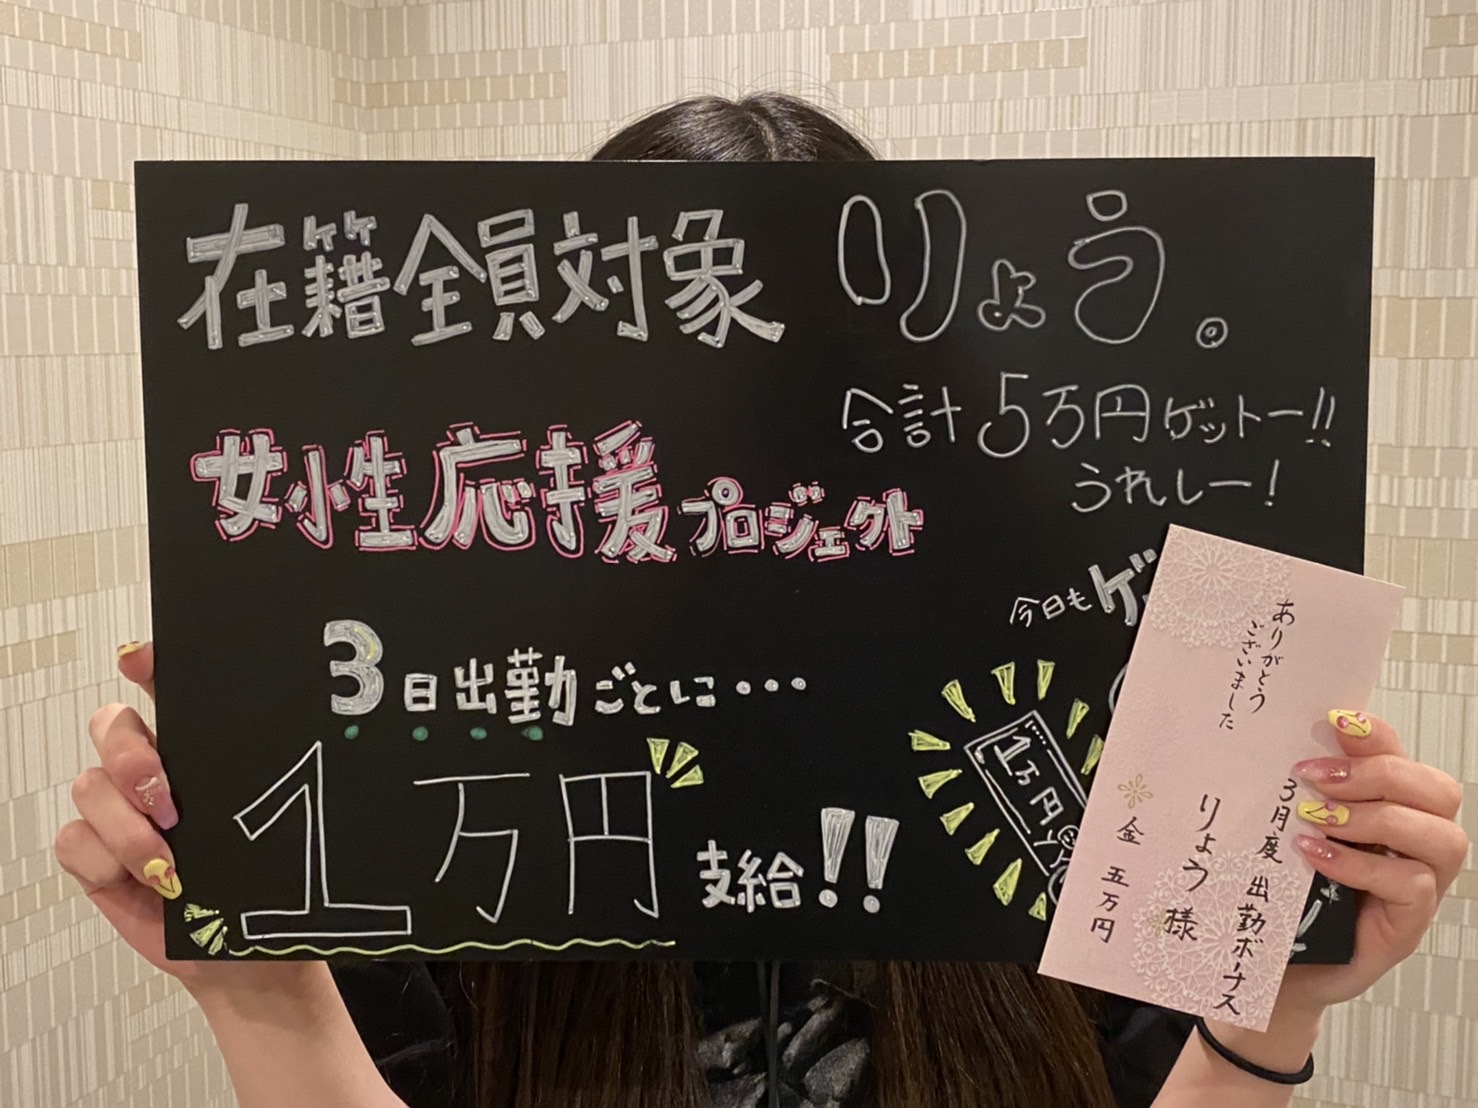 在籍全員対象
りょう。
合計5万円ゲットー!!
うれしー!
女性応援プロジェクト
3日出勤ごとに・・・
1万円支給!!
今日もゲ
1万円
ありがとう
ございました
3月度 出勤ボーナス
りょう様
金 五万円